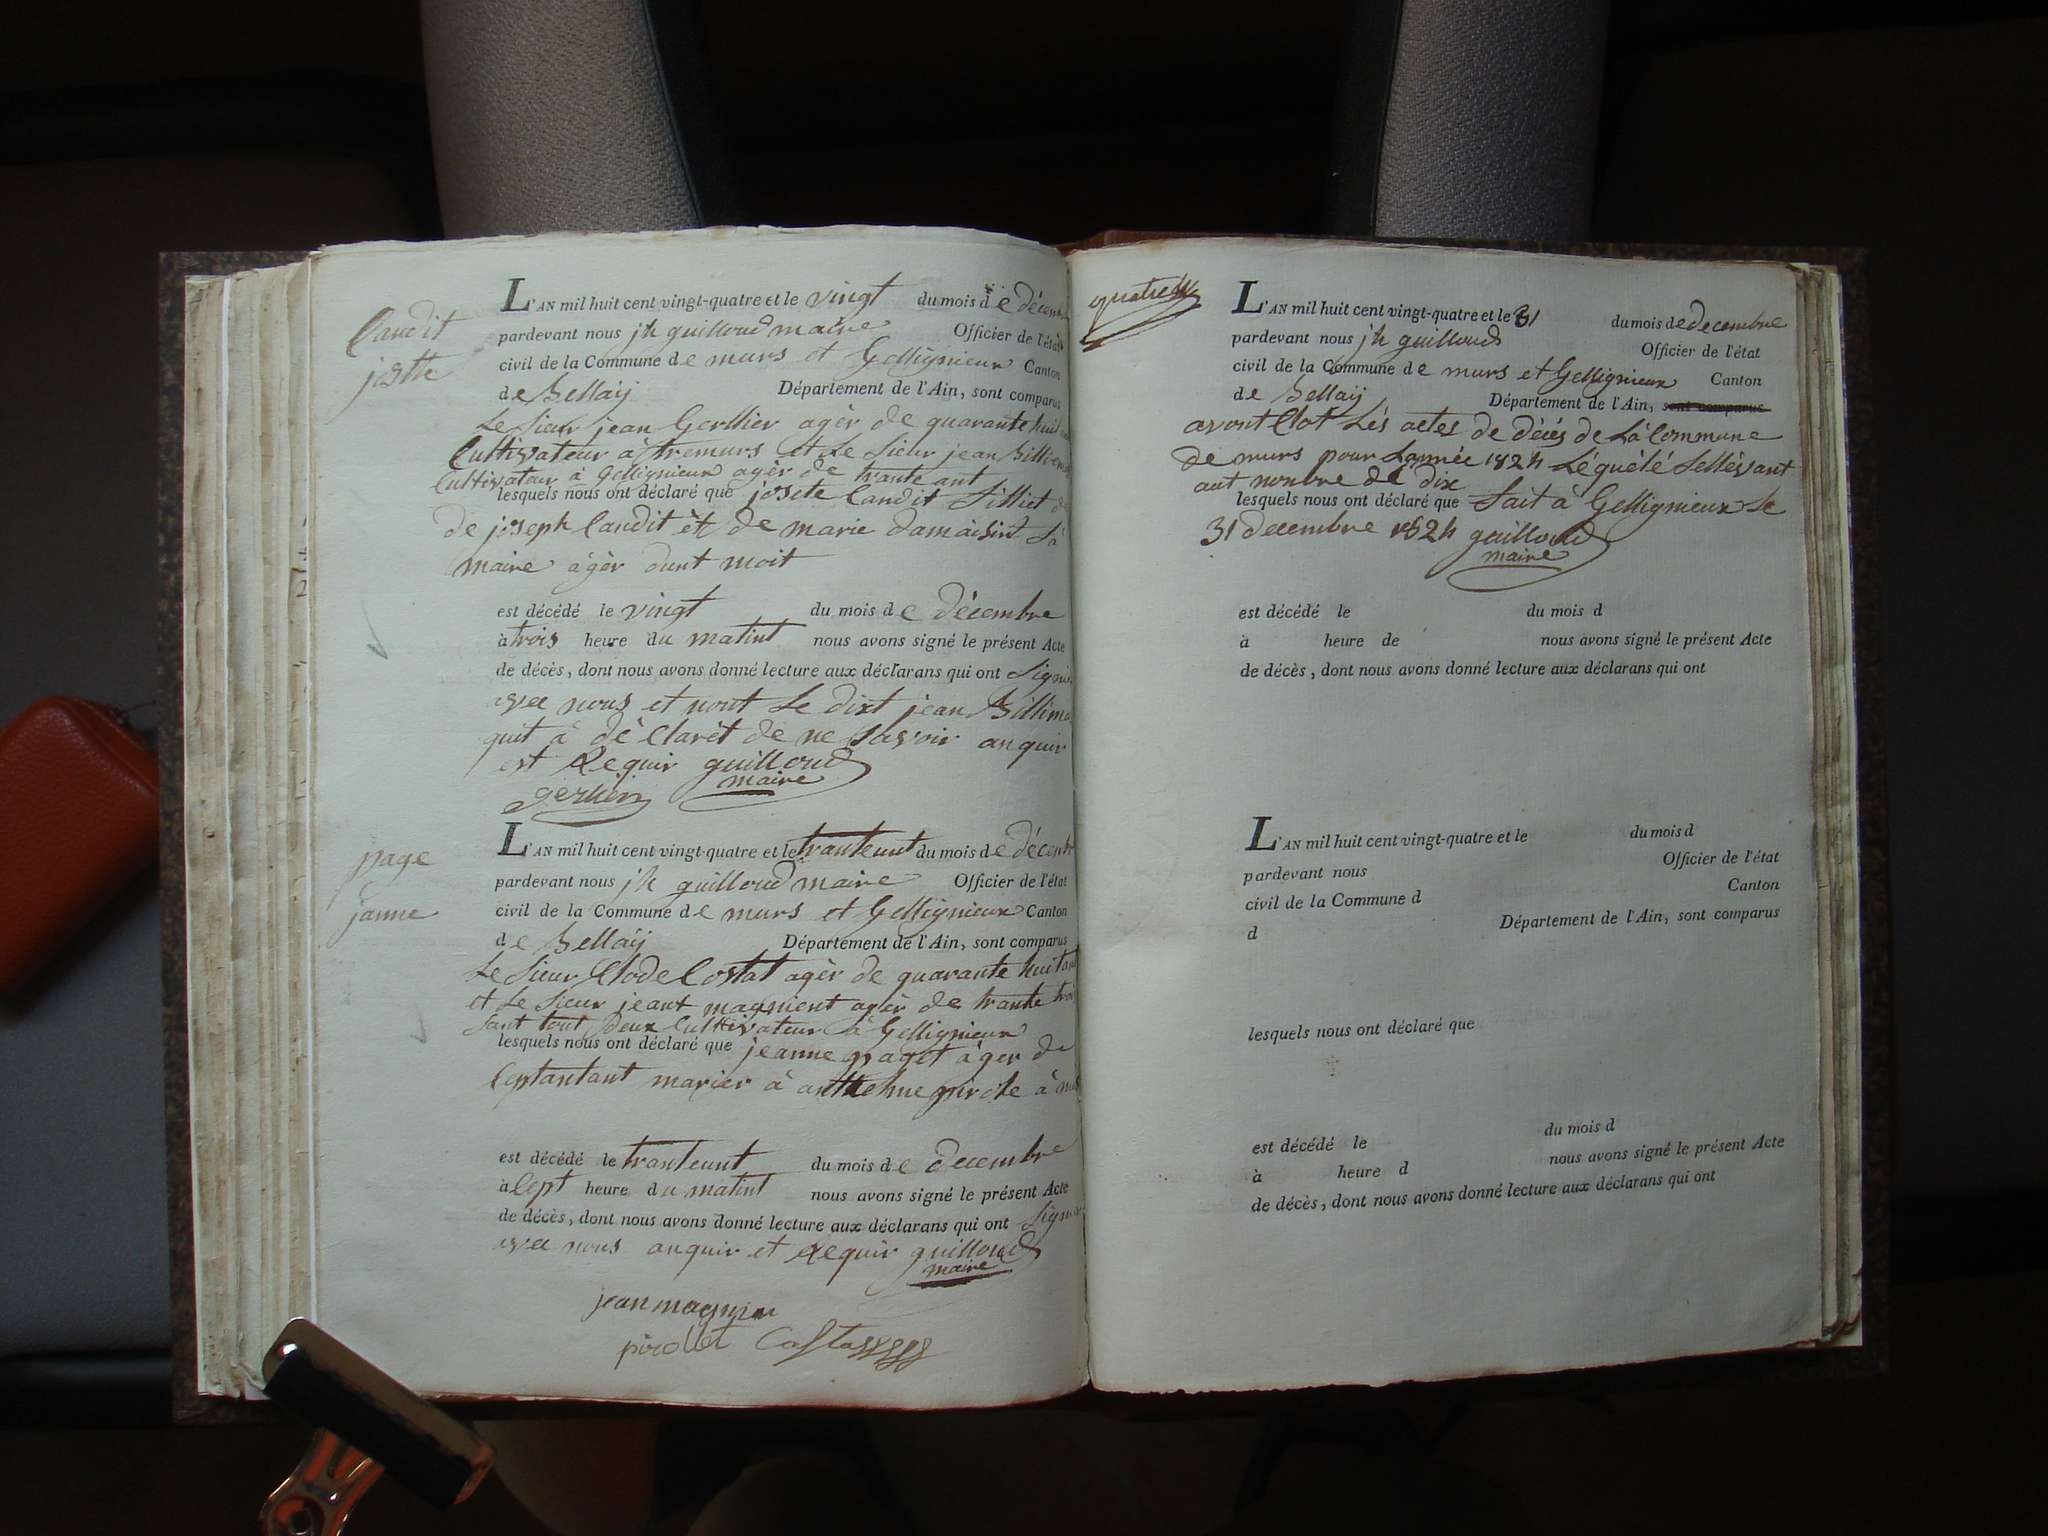 Candit
josette
L'AN mil huit cent vingt-quatre et le vingt du mois de décembre
pardevant nous jh guilloud maire Officier de l'état
civil de la Commune de murs et Gellignieux Canton
de Bellaÿ Département de l'Ain, sont comparus
Le Sieur jean Gerllier agèr de quarante huit
Cultivateur à tremurs et Le Sieur jean
Cultivateur à Gellignieux agèr de trante ant
lesquels nous ont déclaré que josete Candit filliet de
de joseph Candit èt de marie damaisint Sa
maire àgèr dunt moit
est décédé le vingt du mois de décembre
à trois heure du matint nous avons signé le présent Acte
de décès, dont nous avons donné lecture aux déclarans qui ont Signer
avec nous et nont Le dixt jean
quit à dè Clarèt de ne Savoir anquir
est Requir guilloud
maire
gerlier
page
janne
L'AN mil huit cent vingt-quatre et le tranteunt du mois de décembre
pardevant nous jh guilloud maire Officier de l'état
civil de la Commune de murs et Gellignieux Canton
de Bellaÿ Département de l'Ain, sont comparus
Le Sieur Clode Costat agèr de quarante huit ant
et Le Sieur jeant magnient agèr de trante troi
Sant tout deux Cultivateur à Gellignieux
lesquels nous ont déclaré que jeanne paget àger de
Ceptantant marier à anthelme pirole à
est décédé le tranteunt du mois de decembre
à Cept heure du matint nous avons signé le présent Acte
de décès, dont nous avons donné lecture aux déclarans qui ont Signer
avec nous anquir et Requir guilloud
maire
jean magnin
pirollet Costa
L'AN mil huit cent vingt-quatre et le 31 du mois de decembre
pardevant nous jh guilloud Officier de l'état
civil de la Commune de murs et Gellignieux Canton
de Bellaÿ Département de l'Ain, sont comparus
avont Clot Lés actes de décés de Là Commune
de murs pour Lannéé 1824 Léquélé Sellèvant
aut nonbre dé dix
lesquels nous ont déclaré que fait à Gellignieux Le
31 decembre 1824 guilloud
maire
est décédé le du mois d
à heure de nous avons signé le présent Acte
de décès, dont nous avons donné lecture aux déclarans qui ont
L'AN mil huit cent vingt-quatre et le du mois d
pardevant nous Officier de l'état
civil de la Commune d Canton
d Département de l'Ain, sont comparus
lesquels nous ont déclaré que
est décédé le du mois d
à heure d nous avons signé le présent Acte
de décès, dont nous avons donné lecture aux déclarans qui ont